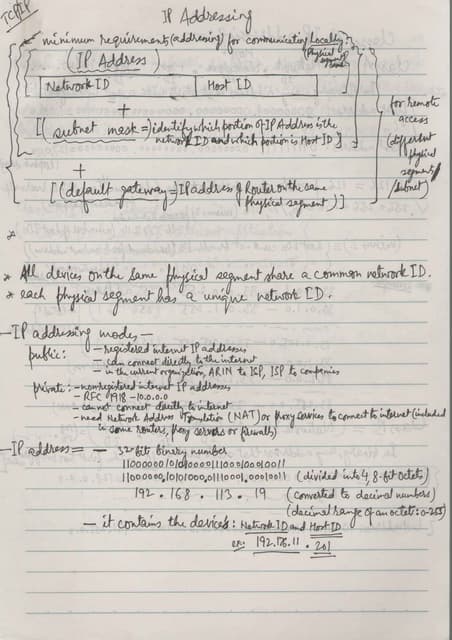 TCP/IP
IP Addressing
* minimum requirements (addressing) for communicating Locally
(Physical segment same)
(IP Address)
Network ID Host ID
+
[(subnet mask =) identify which portion of IP Address is the
network ID and which portion is Host ID]
+
[(default gateway = IP address of Router on the same
physical segment)]
for remote
access
(different
physical
segment/
subnet)
*
* All devices on the same physical segment share a common network ID.
* each physical segment has a unique network ID.
— IP addressing modes —
public: — registered internet IP addresses
— can connect directly to the internet
— in the current organization, ARIN to ISP, ISP to companies
private: — nonregistered internet IP addresses
— RFC 1918 — 10.0.0.0
— cannot connect directly to internet
— need Network Address Translation (NAT) or Proxy services to connect to internet (included
in some routers, proxy servers or firewalls)
— IP address = — 32 bit binary number
11000000101010000111000100010011
11000000,10101000,01110001,00010011 (divided into 4, 8-bit octets)
192 . 168 . 113 . 19 (converted to decimal numbers)
(decimal range of an octet: 0-255)
— it contains the device's: Network ID and Host ID
ex: 192.176.11 . 201